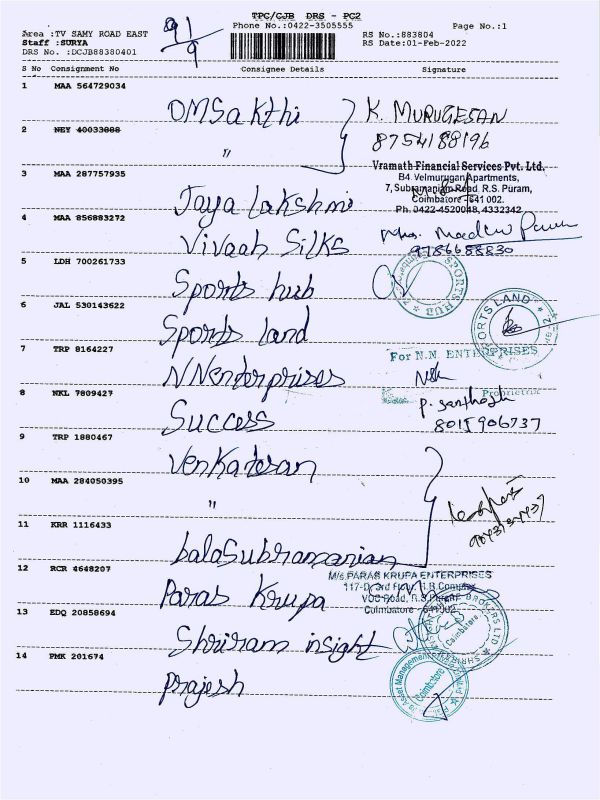 TPC/CJB DRS - PC2
Area :TV SAMY ROAD EAST
Phone No.:0422-3505555
Page No.:1
Staff :SURYA
RS No.:883804
DRS No. :DCJB88380401
RS Date:01-Feb-2022
91/9
S No Consignment No Consignee Details Signature
1 MAA 564729034
OMSakthi K. MURUGESAN
2 NEY 40033888 8754188196
"
3 MAA 287757935
Vramath Financial Services Pvt. Ltd.
B4 Velmurugan Apartments,
7, Subramaniam Road, R.S. Puram,
Coimbatore -641 002.
Ph. 0422-4520048, 4332342
Jaya lakshmi
4 MAA 856883272
Vivaah Silks
9786688830
5 LDH 700261733
Sports hub
SPORTS HUB
6 JAL 530143622
Sports land
SPORTS LAND
7 TRP 8164227
For N.N. ENTERPRISES
NNenterprises
Proprietrix
8 NKL 7809427
Success
P. Santhosh
8015906737
9 TRP 1880467
Venkatesan
10 MAA 284050395
"
11 KRR 1116433
balaSubramanian
12 RCR 4648207
M/s.PARAS KRUPA ENTERPRISES
117-D, 3rd Floor,
VOC Road, R.S.Puram
Coimbatore - 641002
Paras Krupa
13 EDQ 20858694
Shriram insight
BROKERS LTD
Coimbatore
14 PMK 201674
Prajesh
Asset Management
Coimbatore